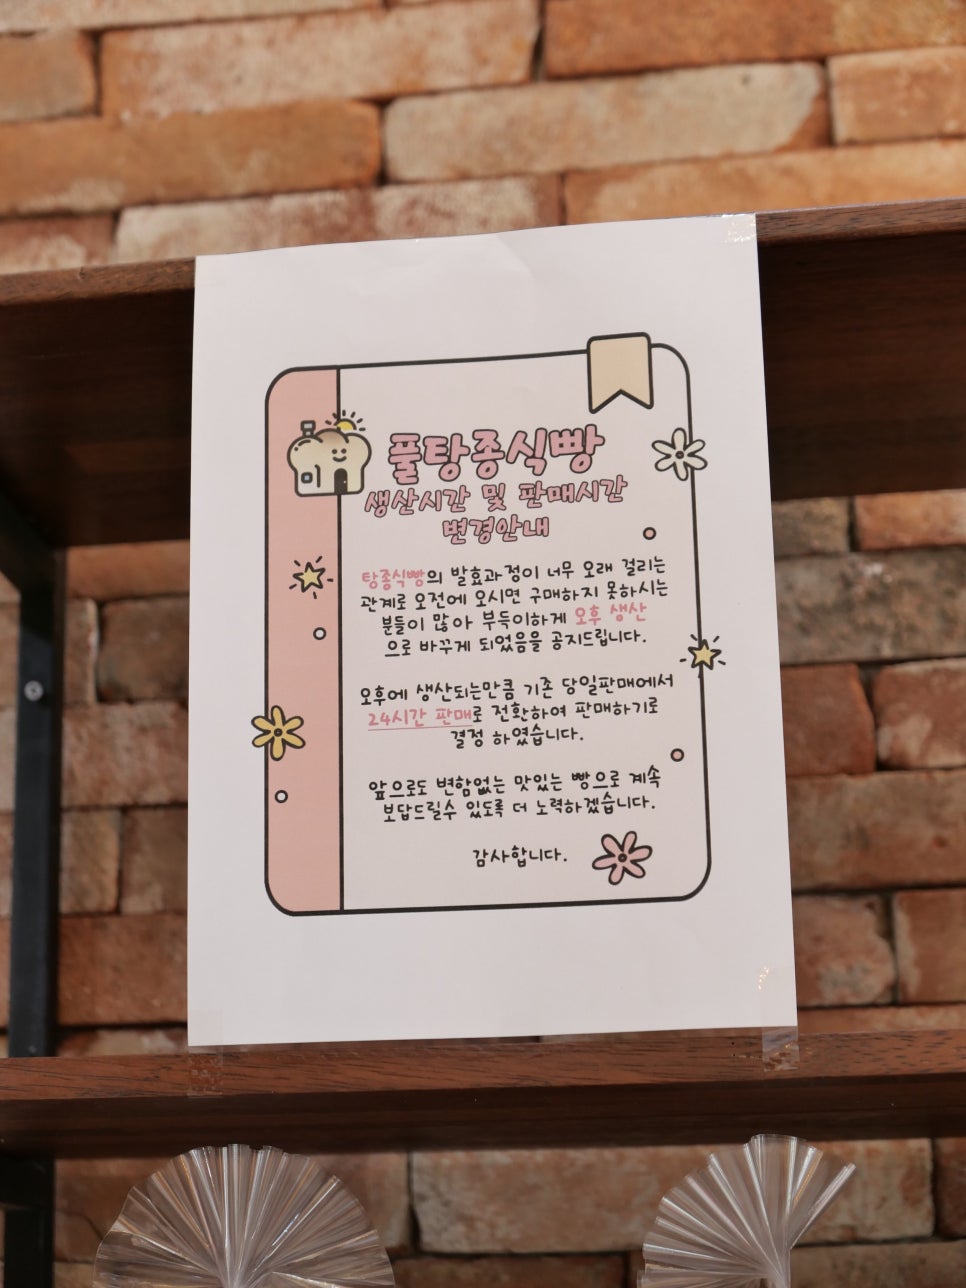 풀탕종식빵
생산시간 및 판매시간
변경안내
탕종식빵의 발효과정이 너무 오래 걸리는
관계로 오전에 오시면 구매하지 못하시는
분들이 많아 부득이하게 오후 생산
으로 바꾸게 되었음을 공지드립니다.
오후에 생산되는만큼 기존 당일판매에서
24시간 판매로 전환하여 판매하기로
결정 하였습니다.
앞으로도 변함없는 맛있는 빵으로 계속
보답드릴수 있도록 더 노력하겠습니다.
감사합니다.